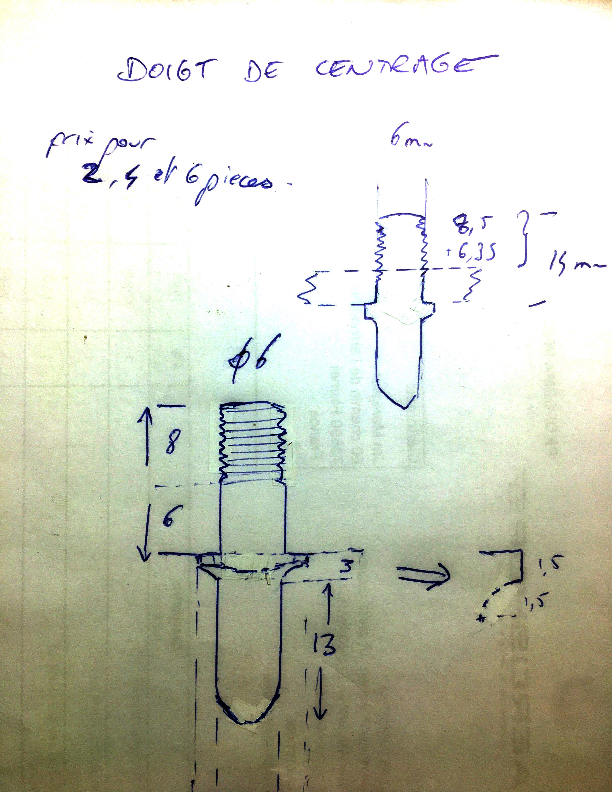 DOIGT DE CENTRAGE
prix pour
2, 4 et 6 pieces.
6 mm
8,5
+6,35
14 mm
ϕ6
8
6
3
1,5
1,5
13